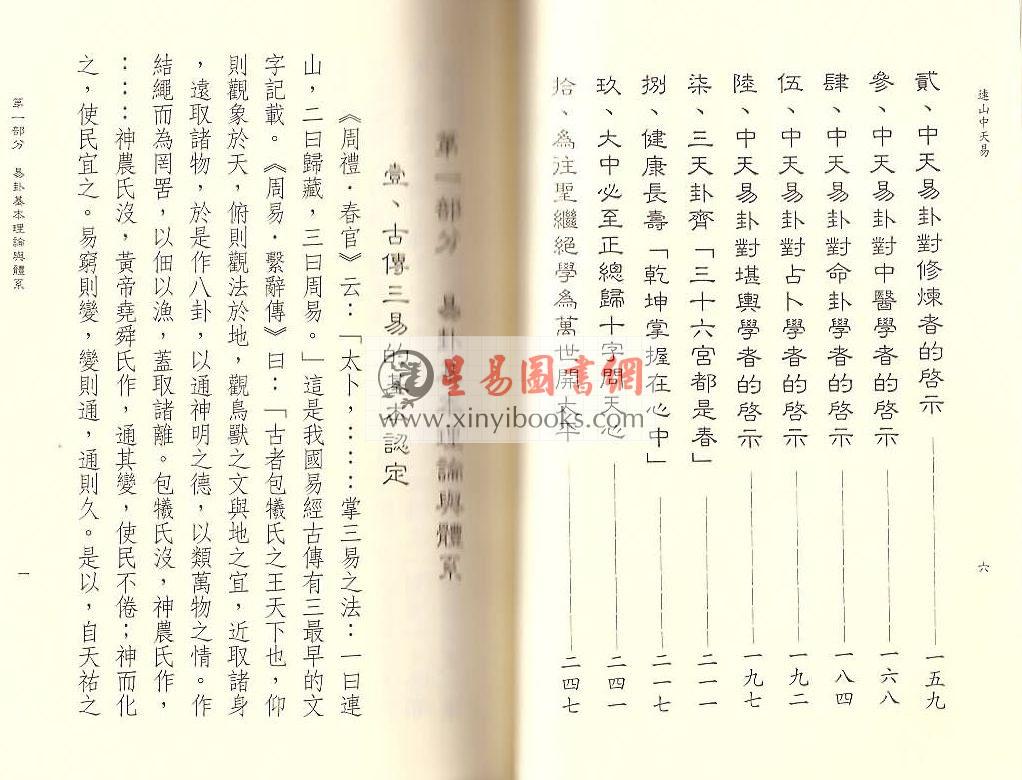 連山中天易
貳、中天易卦對修煉者的啓示 一五九
參、中天易卦對中醫學者的啓示 一六八
肆、中天易卦對命卦學者的啓示 一八四
伍、中天易卦對占卜學者的啓示 一九二
陸、中天易卦對堪輿學者的啓示 一九七
柒、三天卦齊「三十六宮都是春」 二一一
捌、健康長壽「乾坤掌握在心中」 二一七
玖、大中必至正總歸十字問天心 二四一
拾、為往聖繼絕學為萬世開太平 二四七
六
第一部分 易卦基本理論與體系
壹、古傳三易的基本認定
《周禮·春官》云:「太卜,……掌三易之法:一曰連
山,二曰歸藏,三曰周易。」這是我國易經古傳有三最早的文
字記載。《周易·繫辭傳》曰:「古者包犧氏之王天下也,仰
則觀象於天,俯則觀法於地,觀鳥獸之文與地之宜,近取諸身
,遠取諸物,於是作八卦,以通神明之德,以類萬物之情。作
結繩而為罔罟,以佃以漁,蓋取諸離。包犧氏沒,神農氏作,
……神農氏沒,黃帝堯舜氏作,通其變,使民不倦;神而化
之,使民宜之。易窮則變,變則通,通則久。是以,自天祐之
第一部分 易卦基本理論與體系
一
星易圖書網
www.xinyibooks.com